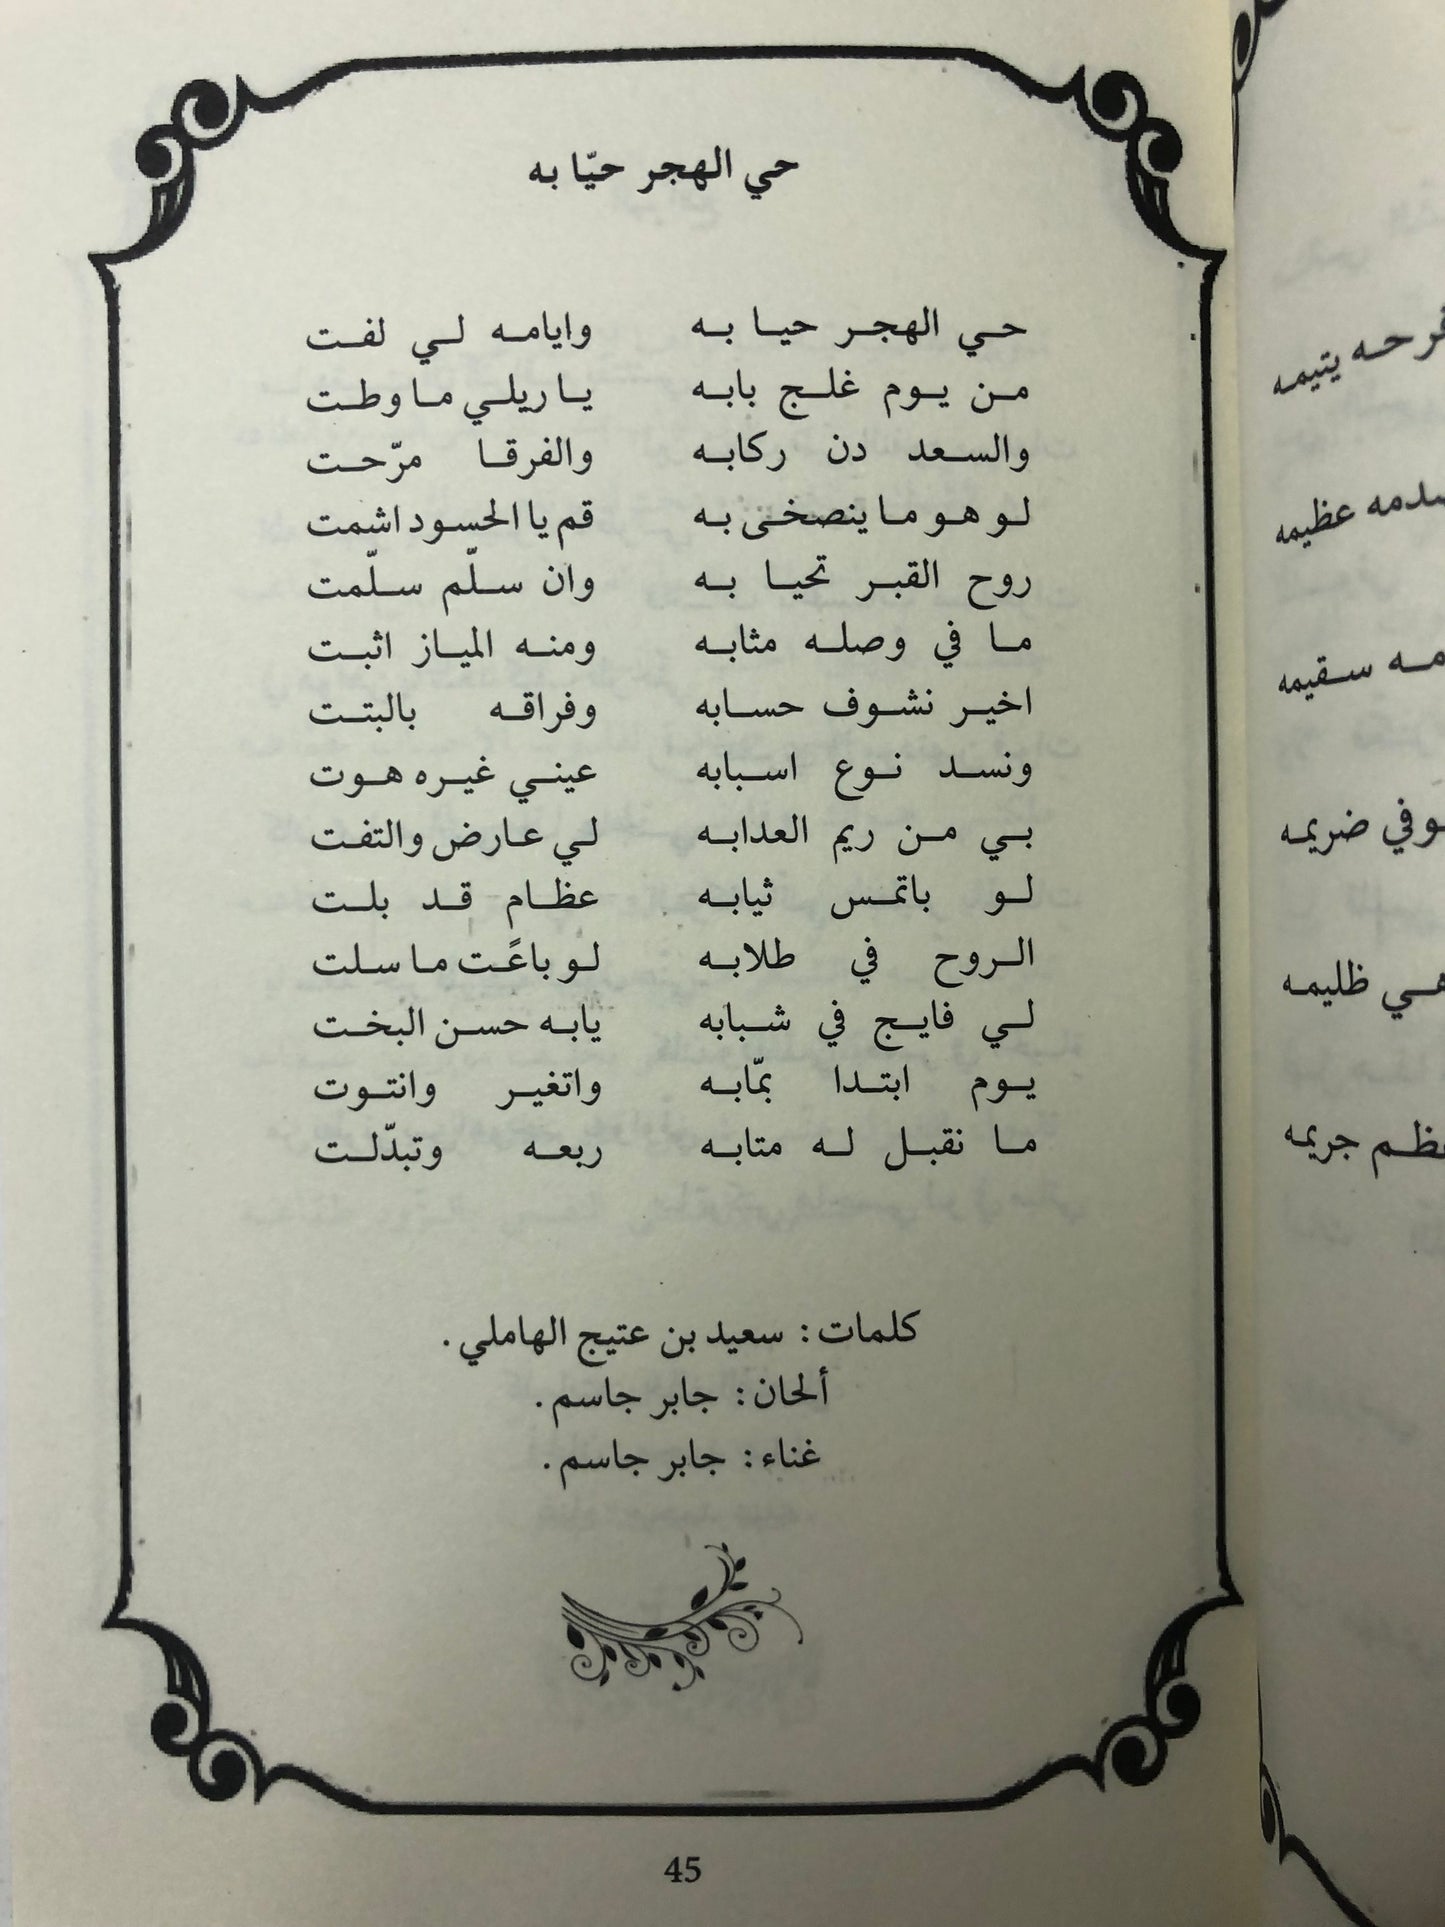 حي الهجر حيّا به
حي الهجر حيا به وايامه لي لفت
من يوم غلج بابه يا ريلي ما وطت
والسعد دن ركابه والفرقا مرّحت
لو هو ما ينصخى به قم يا الحسود اشمت
روح القبر تحيا به وان سلّم سلّمت
ما في وصله مثابه ومنه المياز اثبت
اخير نشوف حسابه وفراقه بالبتت
ونسد نوع اسبابه عيني غيره هوت
بي من ريم العدابه لي عارض والتفت
لو باتمس ثيابه عظام قد بلت
الروح في طلابه لو باعًت ما سلت
لي فايج في شبابه يابه حسن البخت
يوم ابتدا بمّابه واتغير وانتوت
ما نقبل له متابه ربعه وتبدّلت
كلمات: سعيد بن عتيج الهاملي.
ألحان: جابر جاسم.
غناء: جابر جاسم.
45
فرحه يتيمه
عظيمه
سقيمه
ضريمه
ظليمه
جريمه